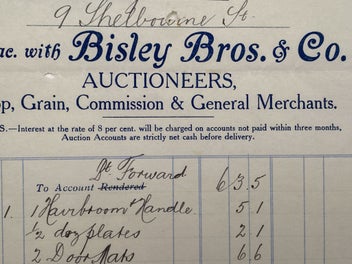 9 Shelbourne St.
ac. with Bisley Bros. & Co.
AUCTIONEERS,
op, Grain, Commission & General Merchants.
S.—Interest at the rate of 8 per cent. will be charged on accounts not paid within three months,
Auction Accounts are strictly net cash before delivery.
Dt Forward
To Account Rendered 6 3 . 5
1. 1 Hairbroom & Handle 5 1
½ doz plates 2 1
2 Door Mats 6 . 6